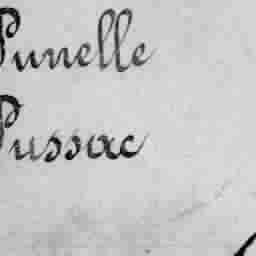 Punelle
Pussac